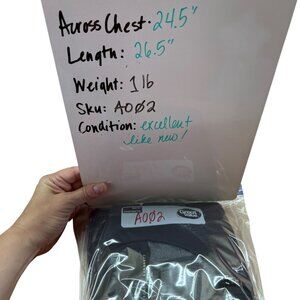 Across Chest: 24.5"
Length: 26.5"
Weight: 1 lb
Sku: A0Ø2
Condition: excellent
like new!
A0Ø2